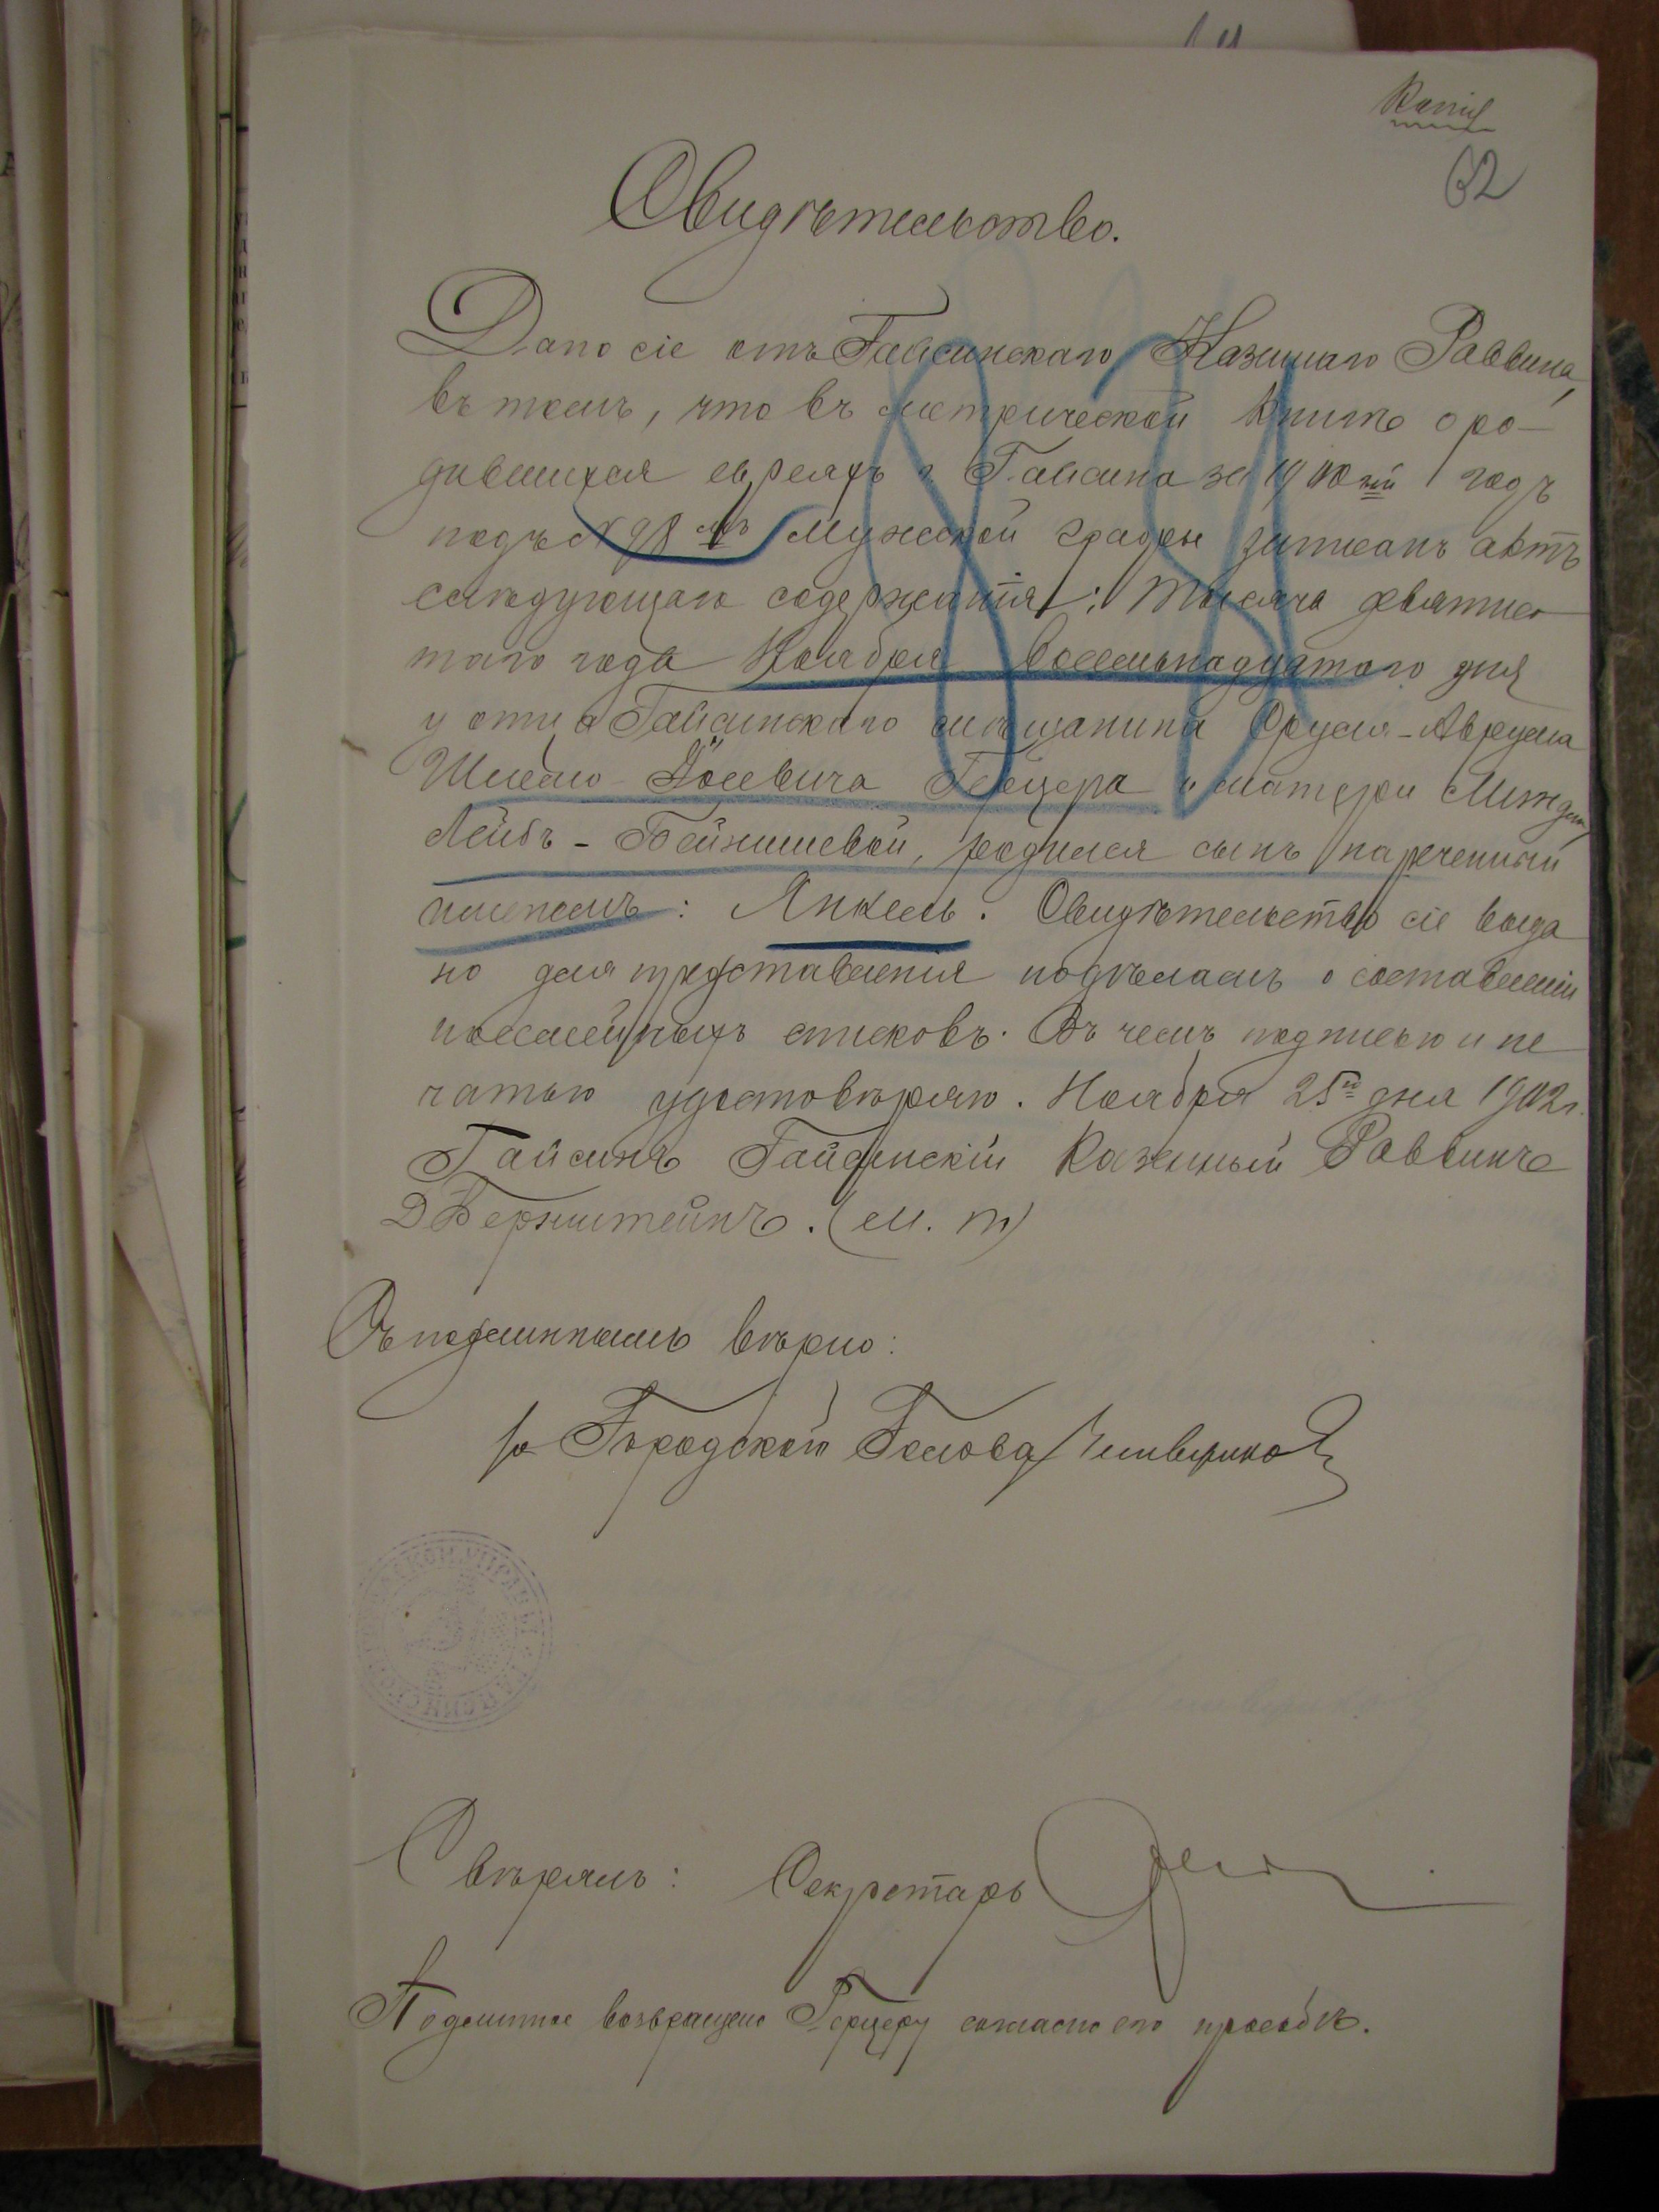 Копія
62
Свидѣтельство.
Дано сіе отъ Гайсинскаго Казеннаго Раввина,
въ томъ, что въ метрической книгѣ о ро-
дившихся евреяхъ г. Гайсина за 1900й годъ
подъ № 98мъ мужской графы записанъ актъ
слѣдующаго содержанія: Тысяча девятисо
таго года Ноября восемьнадцатого дня
у отца Гайсинскаго мѣщанина Сруля-Аврума
Шмелю Іосевича Герцера и матери
Лейбъ-Бейнишевой, родился сынъ нареченный
именемъ: Янкель. Свидѣтельство сіе выда
но для представленія подѣламъ о составленіи
посемейныхъ списковъ. Въ чемъ подписью и пе
чатью удостовѣряю. Ноября 25го дня 1902 г.
Гайсинъ Гайсинскій Казенный Раввинъ
Д Бернштейнъ. (м. п)
Съ подлиннымъ вѣрно:
за Городской Голова
Свѣрялъ: Секретарь
Подлинное возвращено Герцеру согласно его просьбѣ.